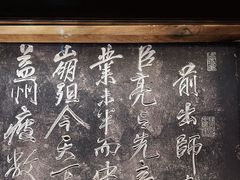 前出師
臣亮言先
業未半而中
崩殂今天下
益州疲敝